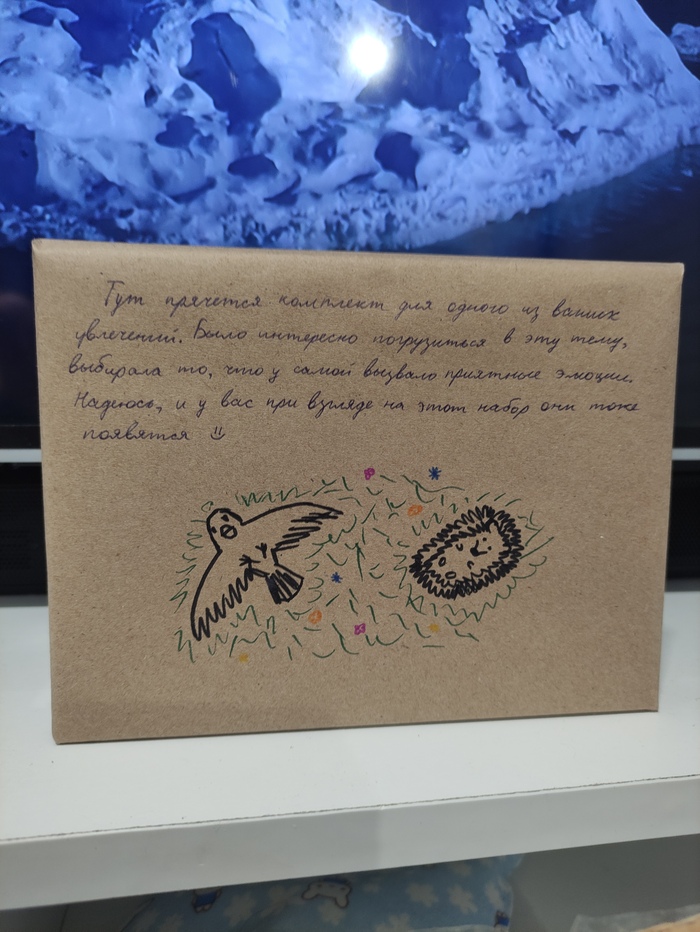 Тут прячется комплект для одного из ваших
увлечений. Было интересно погрузиться в эту тему,
выбирала то, что у самой вызвало приятные эмоции.
Надеюсь, и у вас при взгляде на этот набор они тоже
появятся